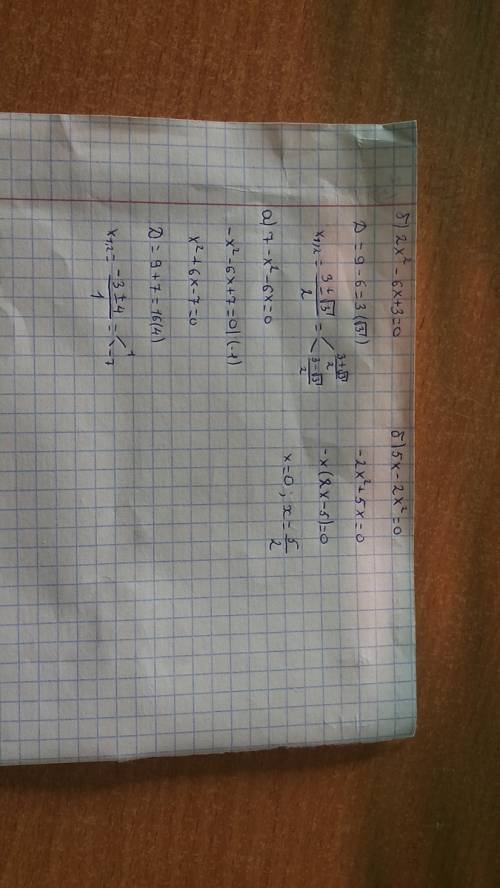 б) 2x² - 6x + 3 = 0
D = 9 - 6 = 3 (√3)
x₁,₂ = (3 ± √3)/2 = < (3+√3)/2 (3-√3)/2
а) 7 - x² - 6x = 0
-x² - 6x + 7 = 0 | (-1)
x² + 6x - 7 = 0
D = 9 + 7 = 16 (4)
x₁,₂ = (-3 ± 4)/1 = < 1 -7
б) 5x - 2x² = 0
-2x² + 5x = 0
-x (2x - 5) = 0
x = 0 ; x = 5/2